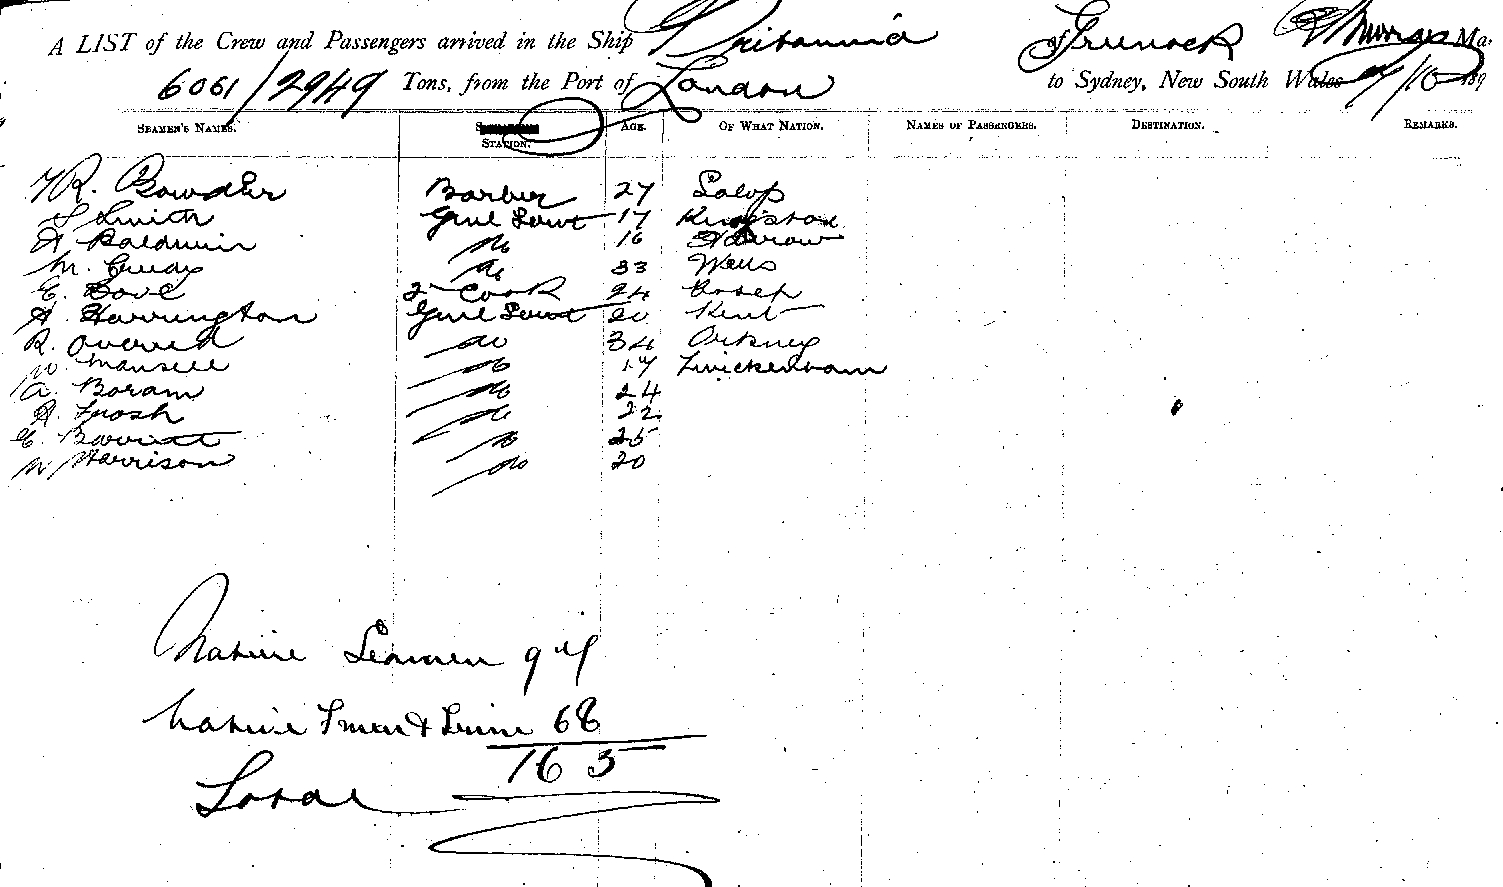 A LIST of the Crew and Passengers arrived in the Ship Britannia of Greenock R Murray Ma
6061/2949 Tons, from the Port of London to Sydney, New South Wales /10 189
SEAMEN'S NAMES. STATION. AGE. OF WHAT NATION. NAMES OF PASSENGERS. DESTINATION. REMARKS.
R. Bowdler Barber 27 Salop
Smith Genl Servt 17 Kingston
A Baldwin do 16 Harrow
M. do 33 Wells
E. Bove 2 Cook 24
A. Harrington Genl Servt 20 Kent
R. Overed do 34 Orkney
W. Mansell do 17 Twickenham
A. Boram do 24
A. Frosh do 22
E. Barrett do 25
W Harrison do 20
Native Seamen 97
Native Fmen & Trim 68
165
Total